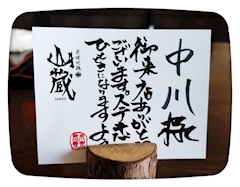 中川様
御来店ありがとう
ございます。ステキな
ひとときになりますよう
山蔵